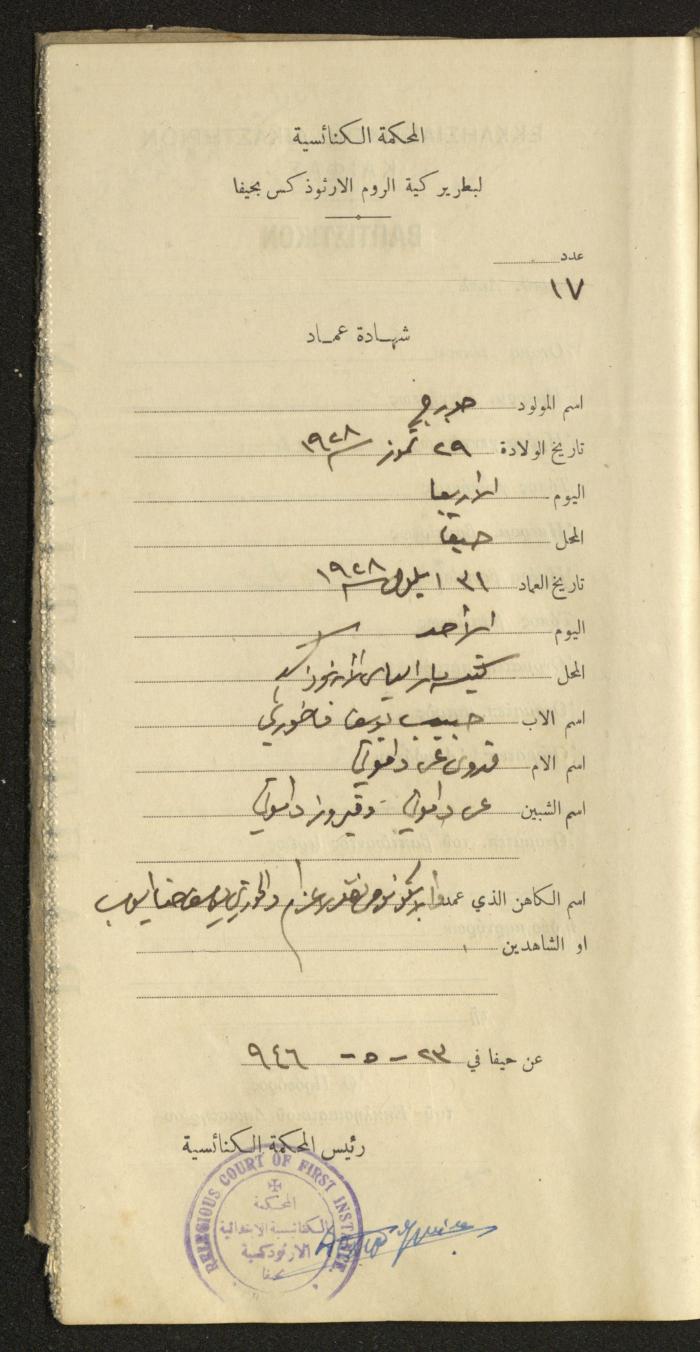 المحكمة الكنائسية
لبطريركية الروم الارثوذكس بحيفا
عدد
١٧
شهادة عماد
اسم المولود جورج
تاريخ الولادة ٢٩ تموز سنة ١٩٢٨
اليوم الأربعا
المحل حيفا
تاريخ العماد ٣١ ايلول سنة ١٩٢٨
اليوم الأحد
المحل كنيسة مار الياس الأرثوذكسية
اسم الاب حبيب يوسف فاخوري
اسم الام داموني
اسم الشبين داموني - وفيروز داموني
اسم الكاهن الذي عمده والخوري يوسف حنا ايوب
او الشاهدين
عن حيفا في ٢٣ - ٥ - ٩٤٦
رئيس المحكمة الكنائسية
RELIGIOUS COURT OF FIRST INSTANCE
المحكمة
الكنائسية الابتدائية
الارثوذكسية
بحيفا